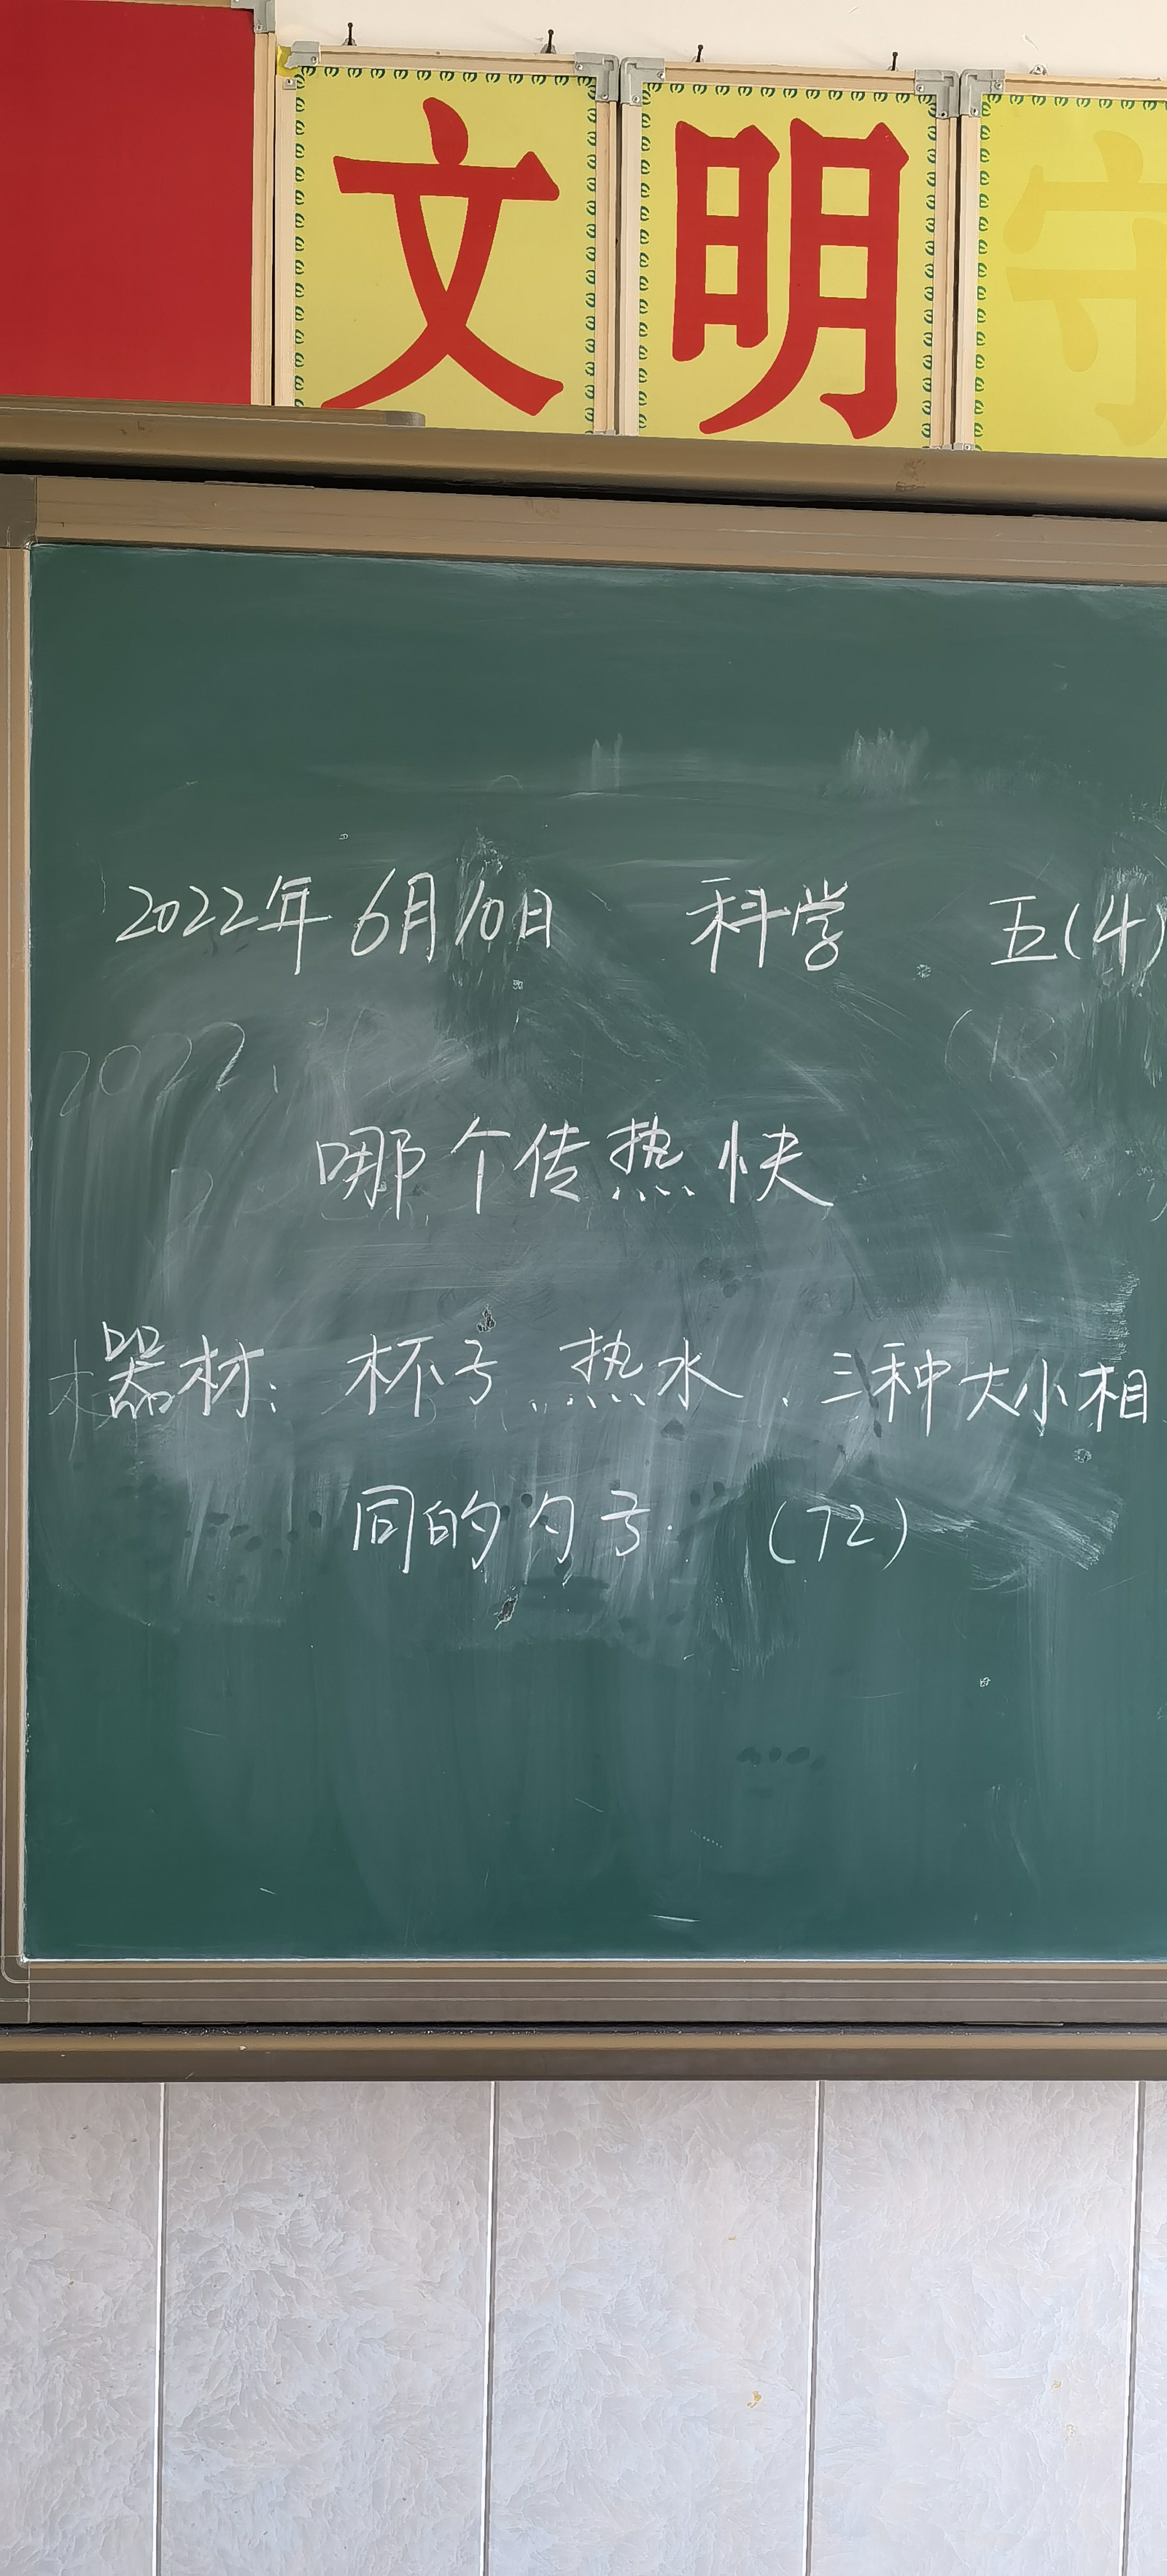 文明守
2022年6月10日 科学 五(4)
2022.
哪个传热快
器材：杯子、热水、三种大小相
同的勺子. (72)